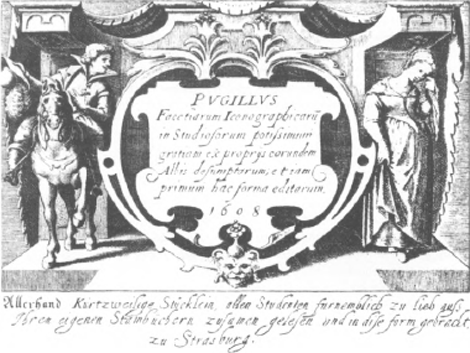 PVGILLVS
Facetiarum Iconographicarū
in Studiosorum potissimum
gratiam ex proprijs eorundem
Albis desumptarum, et iam
primum hac forma editarum.
1608
Allerhand Kurtzweilige Stücklein, allen Studenten fürnemblich zu lieb auß
Ihren eigenen Stambüchern zusamen gelesen und in dise form gebracht
zu Strasburg.